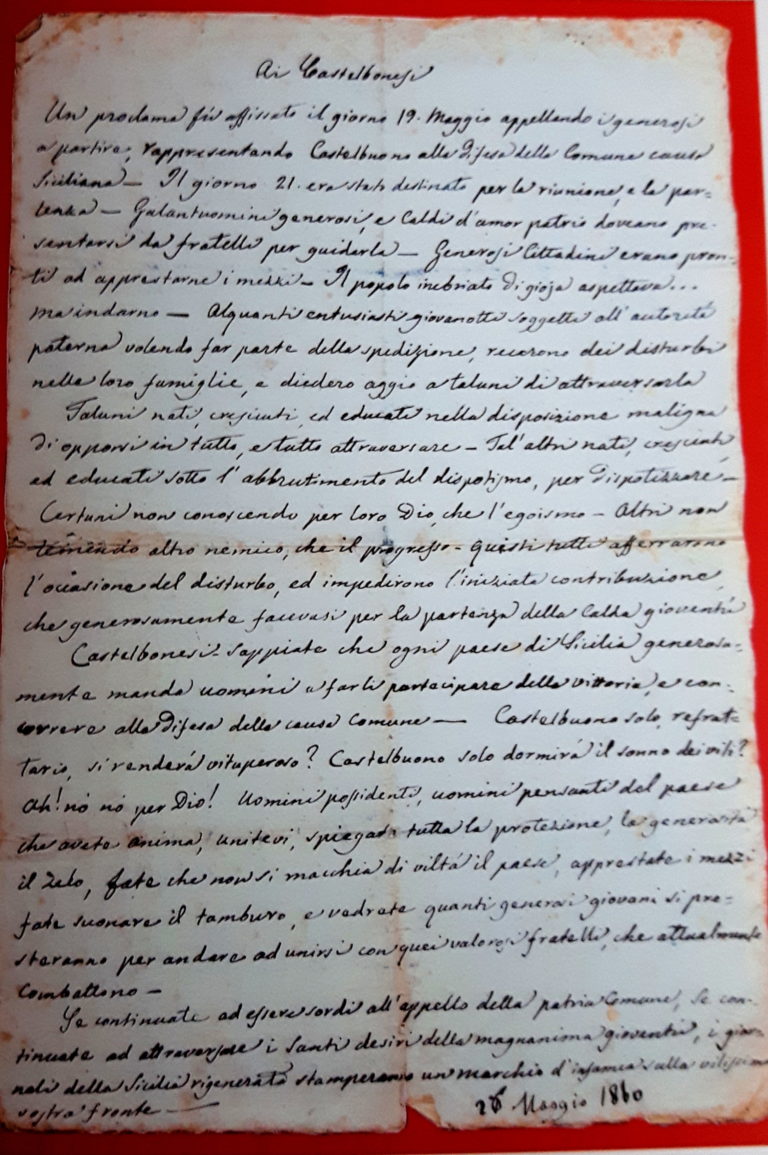 Ai Castelbonesi
Un proclama fù affissato il giorno 19. Maggio appellando i generosi
a partire, rappresentando Castelbuono alla difesa della Comune causa
Siciliana — Il giorno 21. era stato destinato per la riunione, e la par-
tenza — Galantuomini generosi, e Caldi d'amor patrio doveano pre-
sentarsi da fratelli per guidarla — Generosi Cittadini erano pron-
ti ad apprestarne i mezzi — Il popolo inebriato di gioja aspettava...
ma indarno — Alquanti entusiasti giovanotti soggetti all'autorità
paterna volendo far parte della spedizione, recerono dei disturbi
nelle loro famiglie, e diedero aggio a taluni di attraversarla
Taluni nati, cresciuti, ed educati nella disposizione maligna
di opporsi in tutto, e tutto attraversare — Tal'altri nati, cresciuti,
ed educati sotto l'abbrutimento del dispotismo, per dispotizzare —
Certuni non conoscendo per loro Dio, che l'egoismo — Altri non
temendo altro nemico, che il progresso — Questi tutti afferrarono
l'occasione del disturbo, ed impedirono l'iniziata contribuzione,
che generosamente facevasi per la partenza della Calda gioventù
Castelbonesi — Sappiate che ogni paese di Sicilia generosa-
mente manda uomini a farli partecipare della vittoria, e con-
correre alla difesa della causa Comune — Castelbuono solo, refrat-
tario, si renderà vituperoso? Castelbuono solo dormirà il sonno dei vili?
Ah! nò nò per Dio! Uomini possidenti, uomini pensanti del paese
che avete anima, unitevi, spiegate tutta la protezione, la generosità
il zelo, fate che non si macchia di viltà il paese, apprestate i mezzi
fate suonare il tamburo, e vedrete quanti generosi giovani si pre-
steranno per andare ad unirsi con quei valorosi fratelli, che attualmente
Combattono —
Se continuate ad essere sordi all'appello della patria Comune, Se con-
tinuate ad attraversare i Santi desiri della magnanima gioventù, i gior-
nali della Sicilia rigenerata stamperanno un marchio d'infamia sulla vilissima
vostra fronte —
Maggio 1860